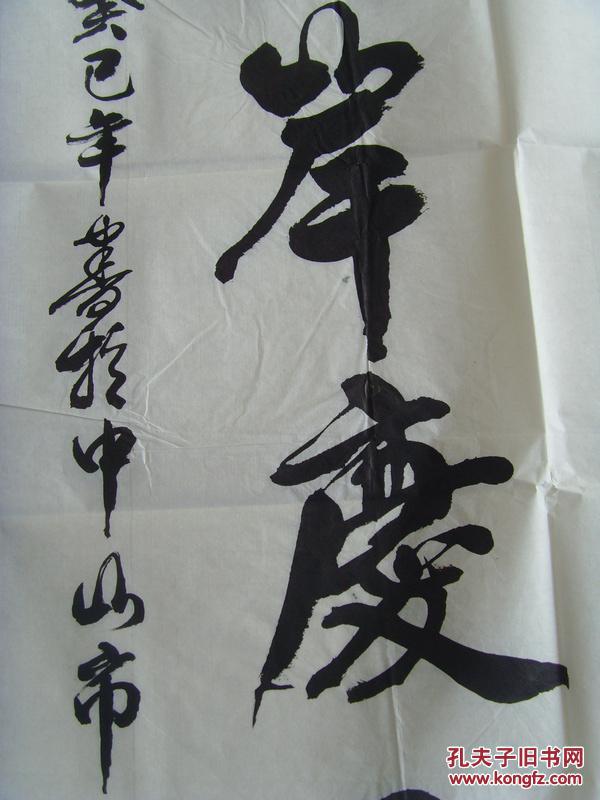 岸慶
癸巳年書於中山市
孔夫子旧书网
www.kongfz.com